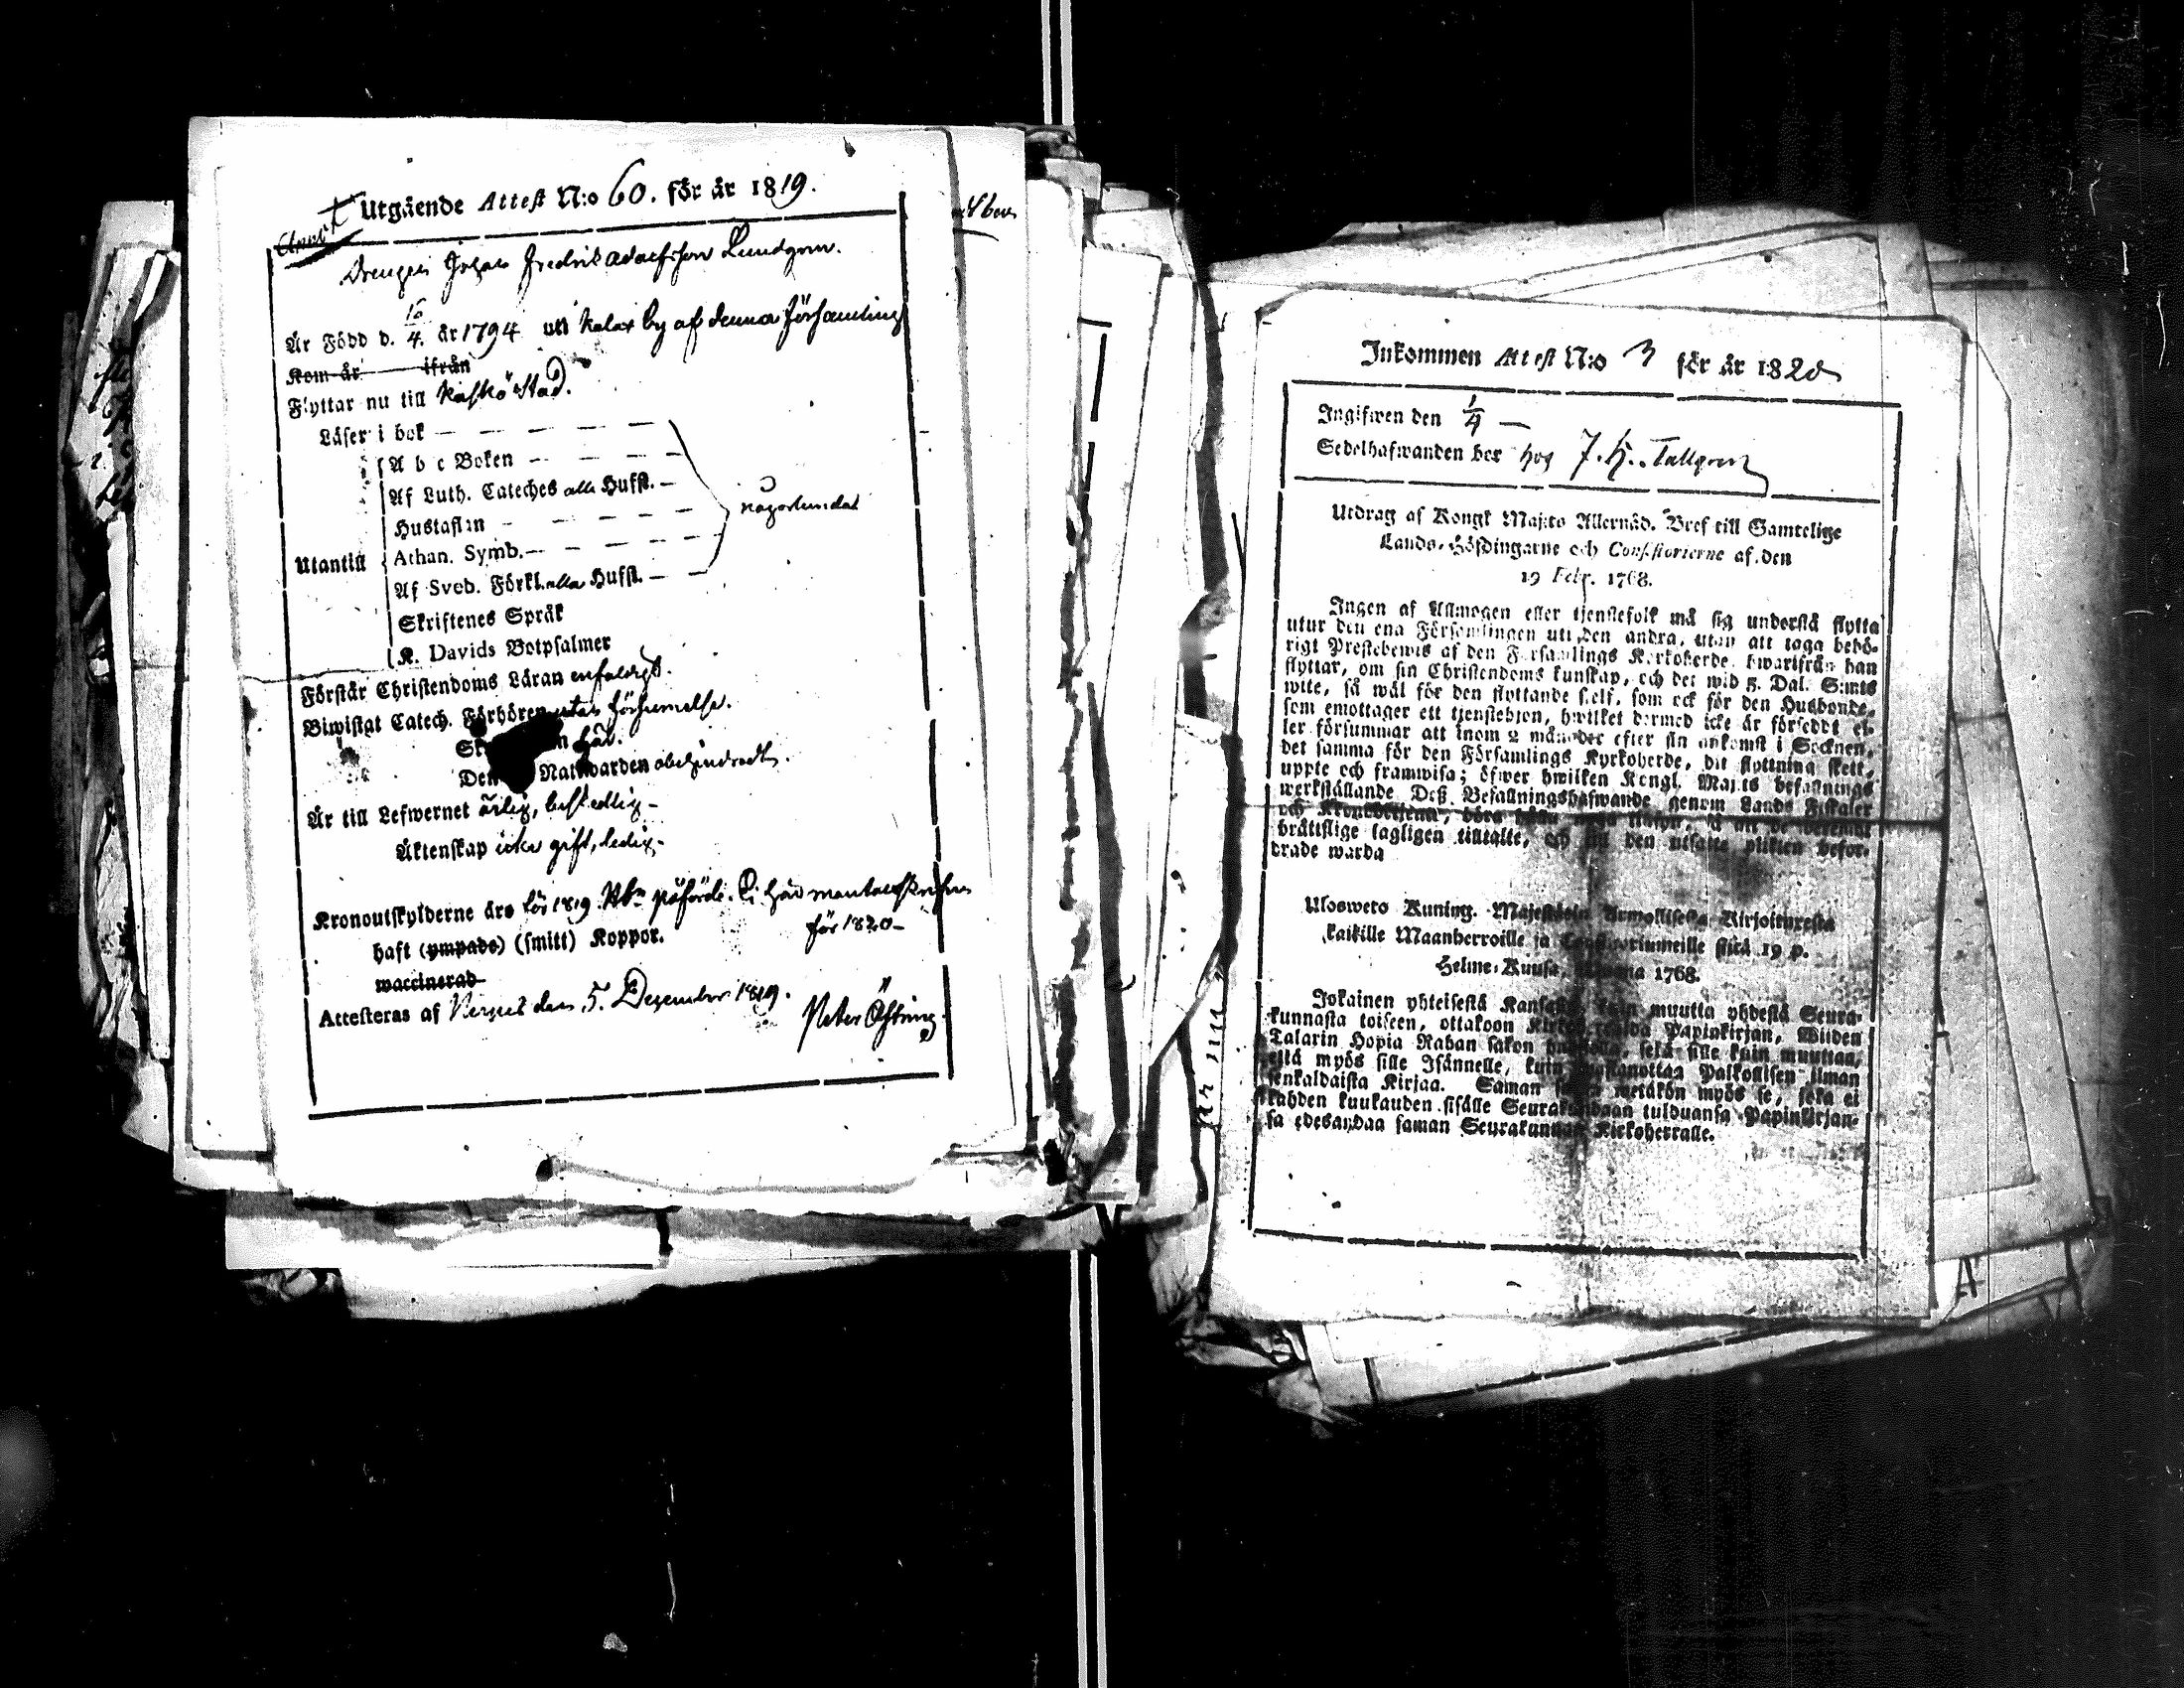 Utgående Attest N:o 60. för år 1819.
Drengen Johan Fredrik Adolfsson Lundgren.
Är Född d. 16/4 år 1794 uti Kalax by af denna Församling
Kom år ifrån
Flyttar nu till Kaskö Stad.
Läser i bok
A b c Boken
Af Luth. Cateches alla Hufst.
någorlunda
Hustaflan
Utantill
Athan. Symb.
Af Sved. Förkl. alla Hufst.
Skriftenes Språk
K. Davids Botpsalmer
Förstår Christendoms Läran enfaldigt.
Biwistat Catech. Förhören utan försummelse.
här.
Den Nattwarden obehindradt.
Är till Lefwernet ärlig, beskedlig
Äktenskap icke gift, ledig
Kronoutskylderne äro för 1819 påförde. Ej här mantalsskrifven
för 1820
haft (ympade) (smitt) Koppor.
waccinerad
Attesteras af Nerpes den 5. December 1819.
Peter Östring
Inkommen Attest N:o 3 för år 1820
Ingifwen den 1/4
Sedelhafwanden bor hos J. H. Tallgren
Utdrag af Kongl Maj:ts Allernåd. Bref till Samtelige
Lands-Höfdingarne och Consistorierne af den
19 Febr. 1768.
Ingen af Allmogen eller tjenstefolk må sig understå flytta
utur den ena Församlingen uti den andra, utan att taga behö-
rigt Prestebewis af den Församlings Kyrkoherde, hwarifrån han
flyttar, om sin Christendoms kunskap, och det wid 5. Dal. S:mts
wite, så wäl för den flyttande sielf, som ock för den Husbonde,
som emottager ett tjenstehjon, hwilket dermed icke är försedt el-
ler försummar att inom 2 månader efter sin ankomst i Socknen,
det samma för den Församlings Kyrkoherde, dit flyttning skett,
uppte och framwisa; öfwer hwilken Kongl. Maj:ts befallnings
werkställande Deß Befallningshafwande genom Lands Fiskaler
och Kronobetjenin, böra hålla noga tillsyn, så att de
brättslige lagligen tilltalte, och till den utsatte plikten befor-
drade warda
Uloswets Kuning. Majestetin Armollisesta Kirjoituxesta
kaikille Maanherroille ja Consistoriumeille siitä 19 p.
Helme-Kuusa, wuonna 1768.
Jokainen yhteisestä Kansasta, kuin muutta yhdestä Seura-
kunnasta toiseen, ottakoon Kirkoherralda Papinkirjan, Wiiden
Talarin Hopia Rahan sakon sekä sille kuin muuttaa,
että myös sille Isännelle, kuin wastanottaa Palkollisen ilman
senkaldaista Kirjaa. Saman wetäkön myös se, joka ei
kahden kuukauden sisälle Seurakundaan tulduansa Papinkirjan-
sa edesandaa saman Seurakunnan Kirkoherralle.